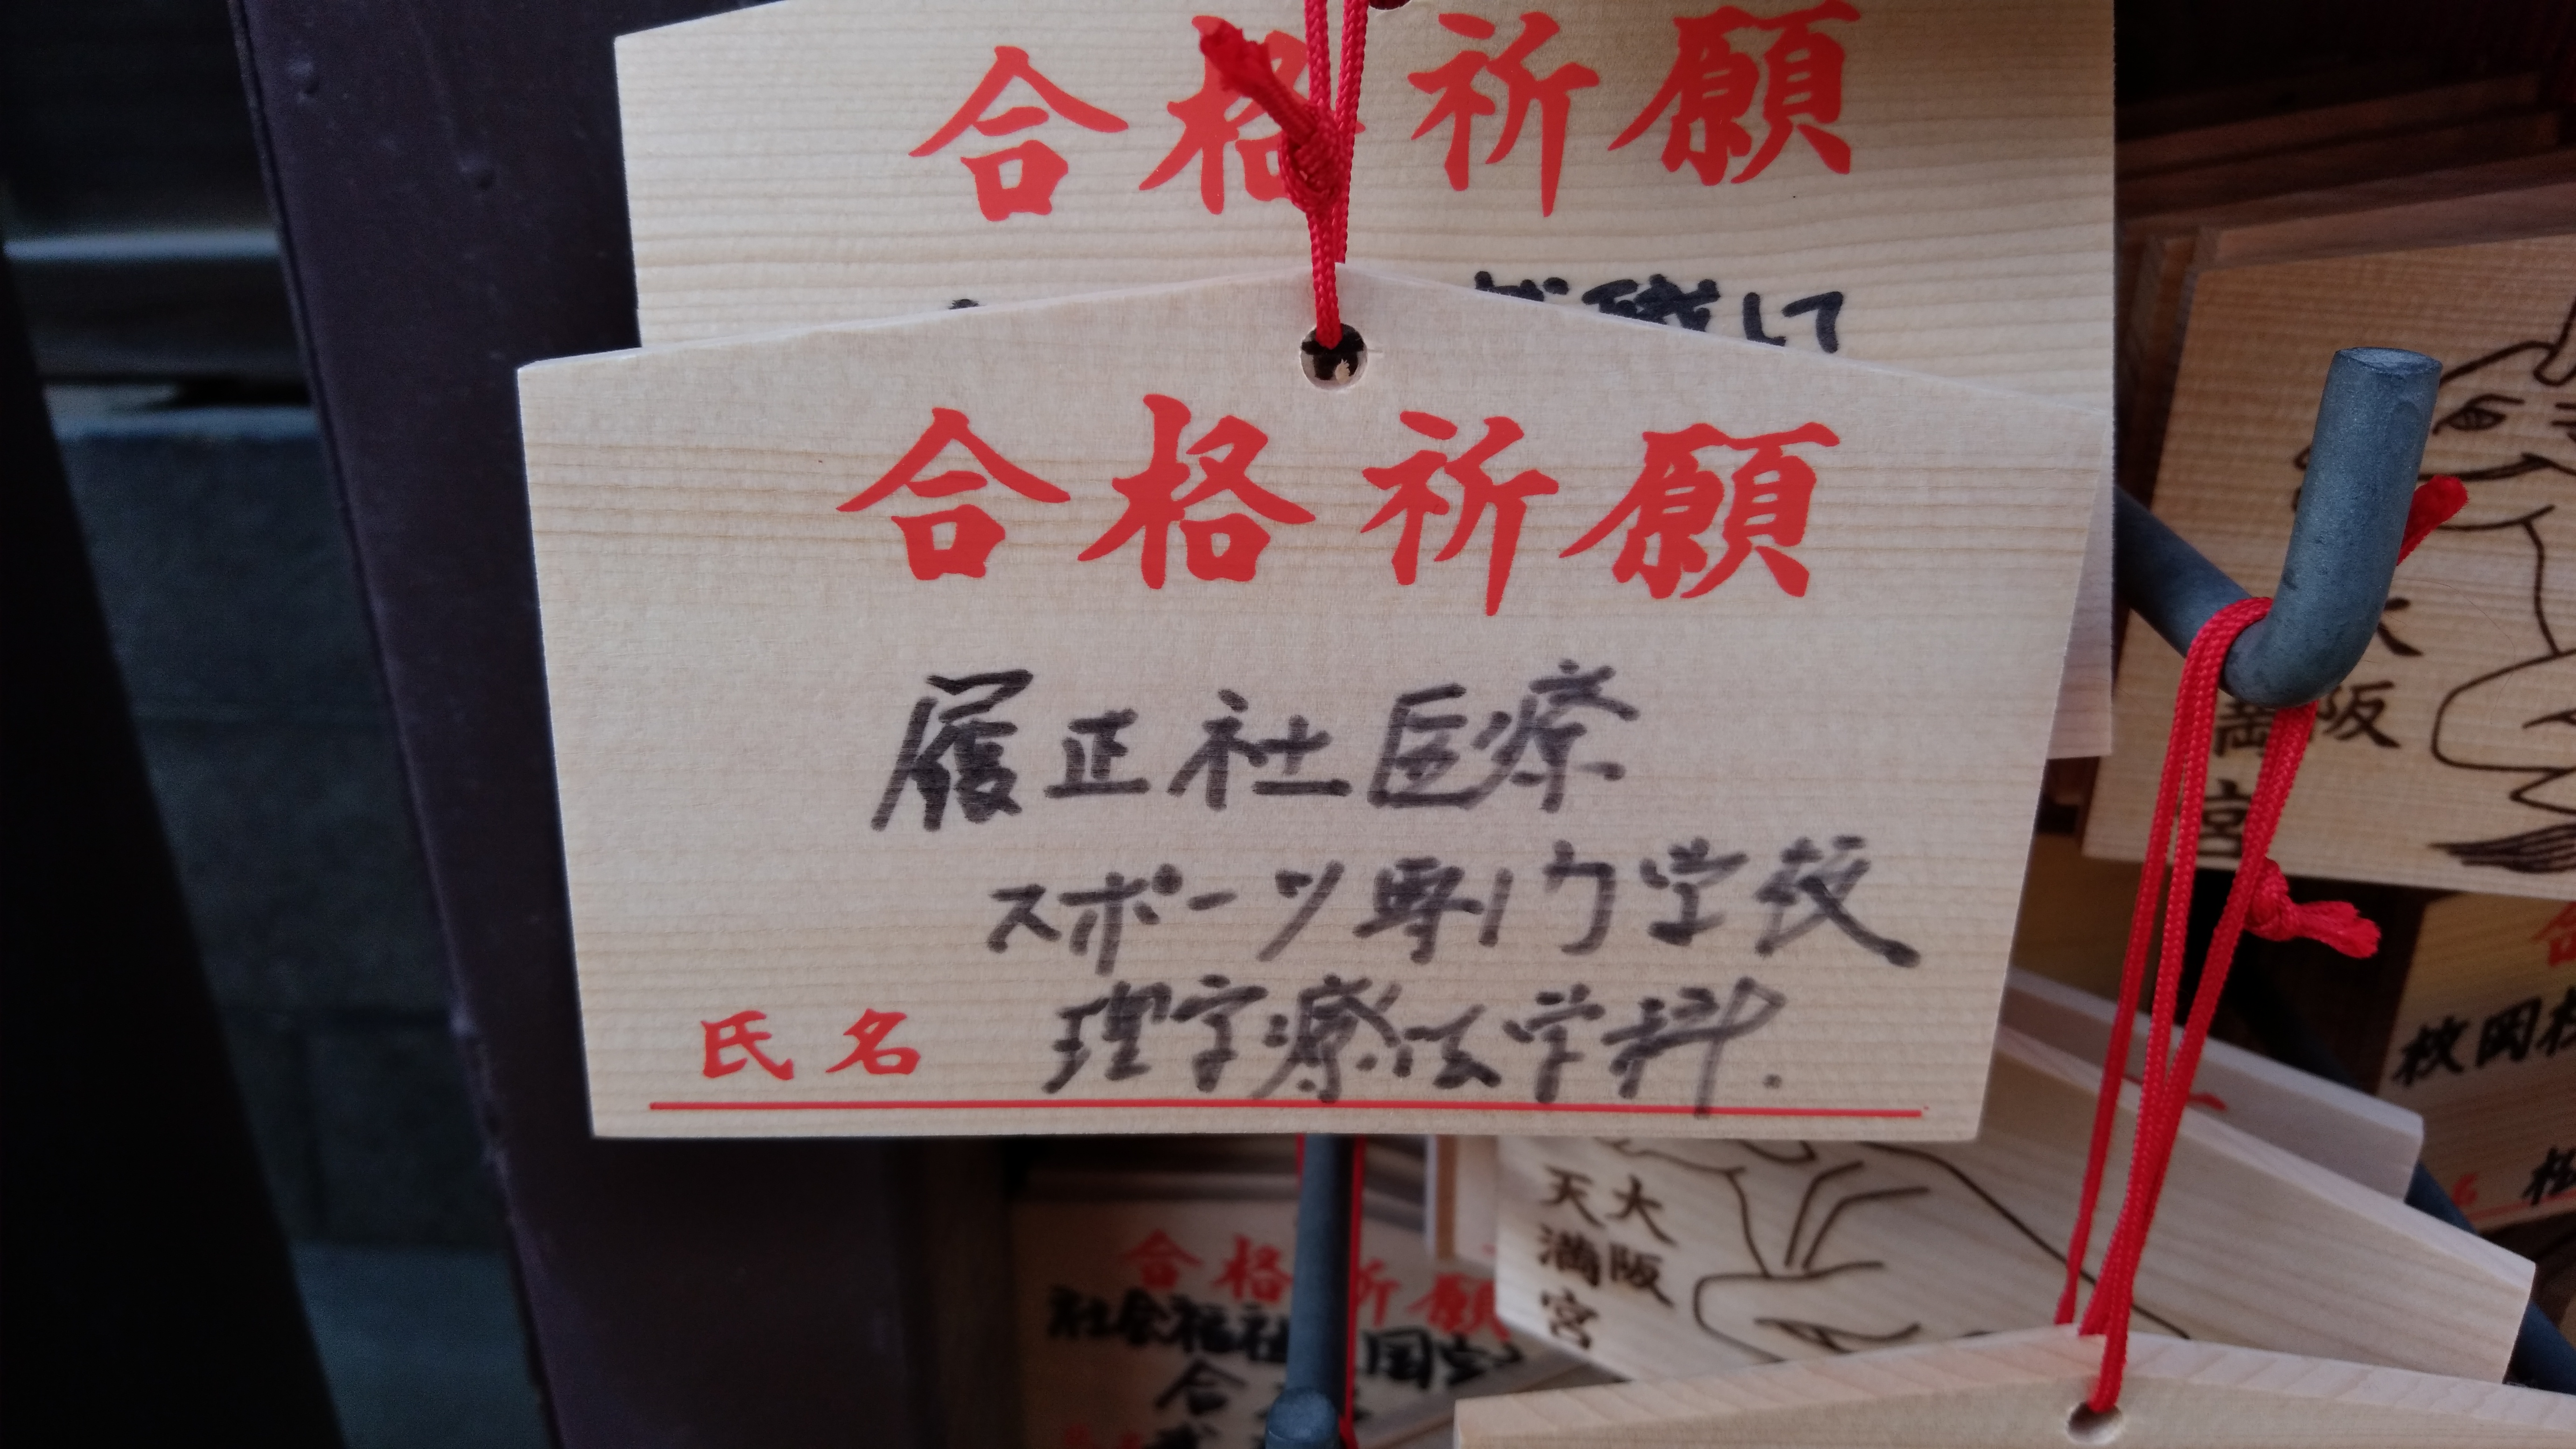 合格祈願
して
合格祈願
履正社医療
スポーツ専門学校
理学療法学科.
氏名
大阪
天満宮
大阪
天満宮
合格祈願
社会福祉
合
枚岡